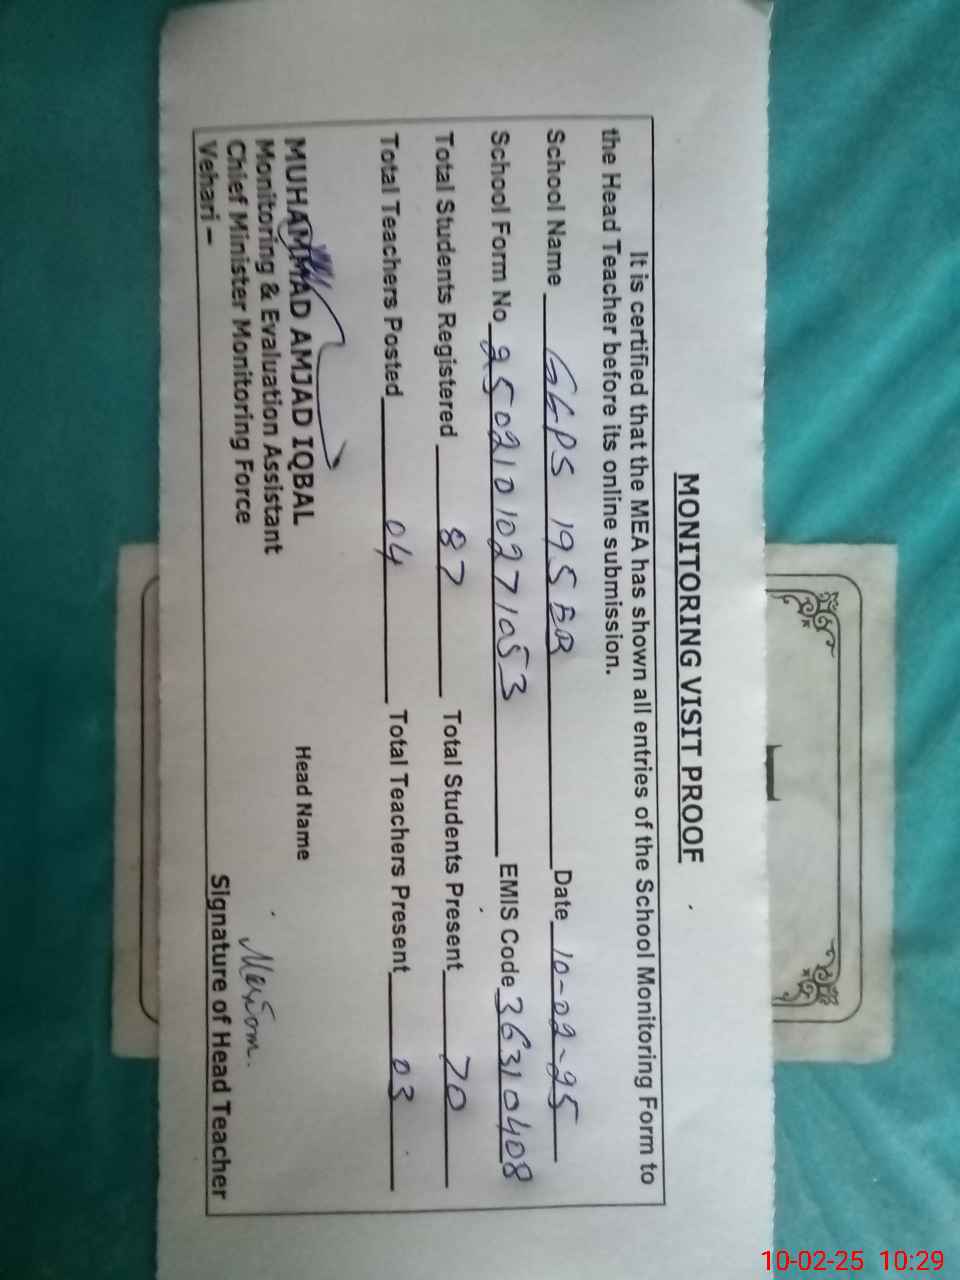 MONITORING VISIT PROOF
It is certified that the MEA has shown all entries of the School Monitoring Form to
the Head Teacher before its online submission.
School Name GGPS 195 EB Date 10-02-25
School Form No 25021010271053 EMIS Code 36310408
Total Students Registered 87 Total Students Present 70
Total Teachers Posted 04 Total Teachers Present 03
MUHAMMAD AMJAD IQBAL Head Name
Monitoring & Evaluation Assistant
Chief Minister Monitoring Force
Vehari – Signature of Head Teacher
10-02-25 10:29